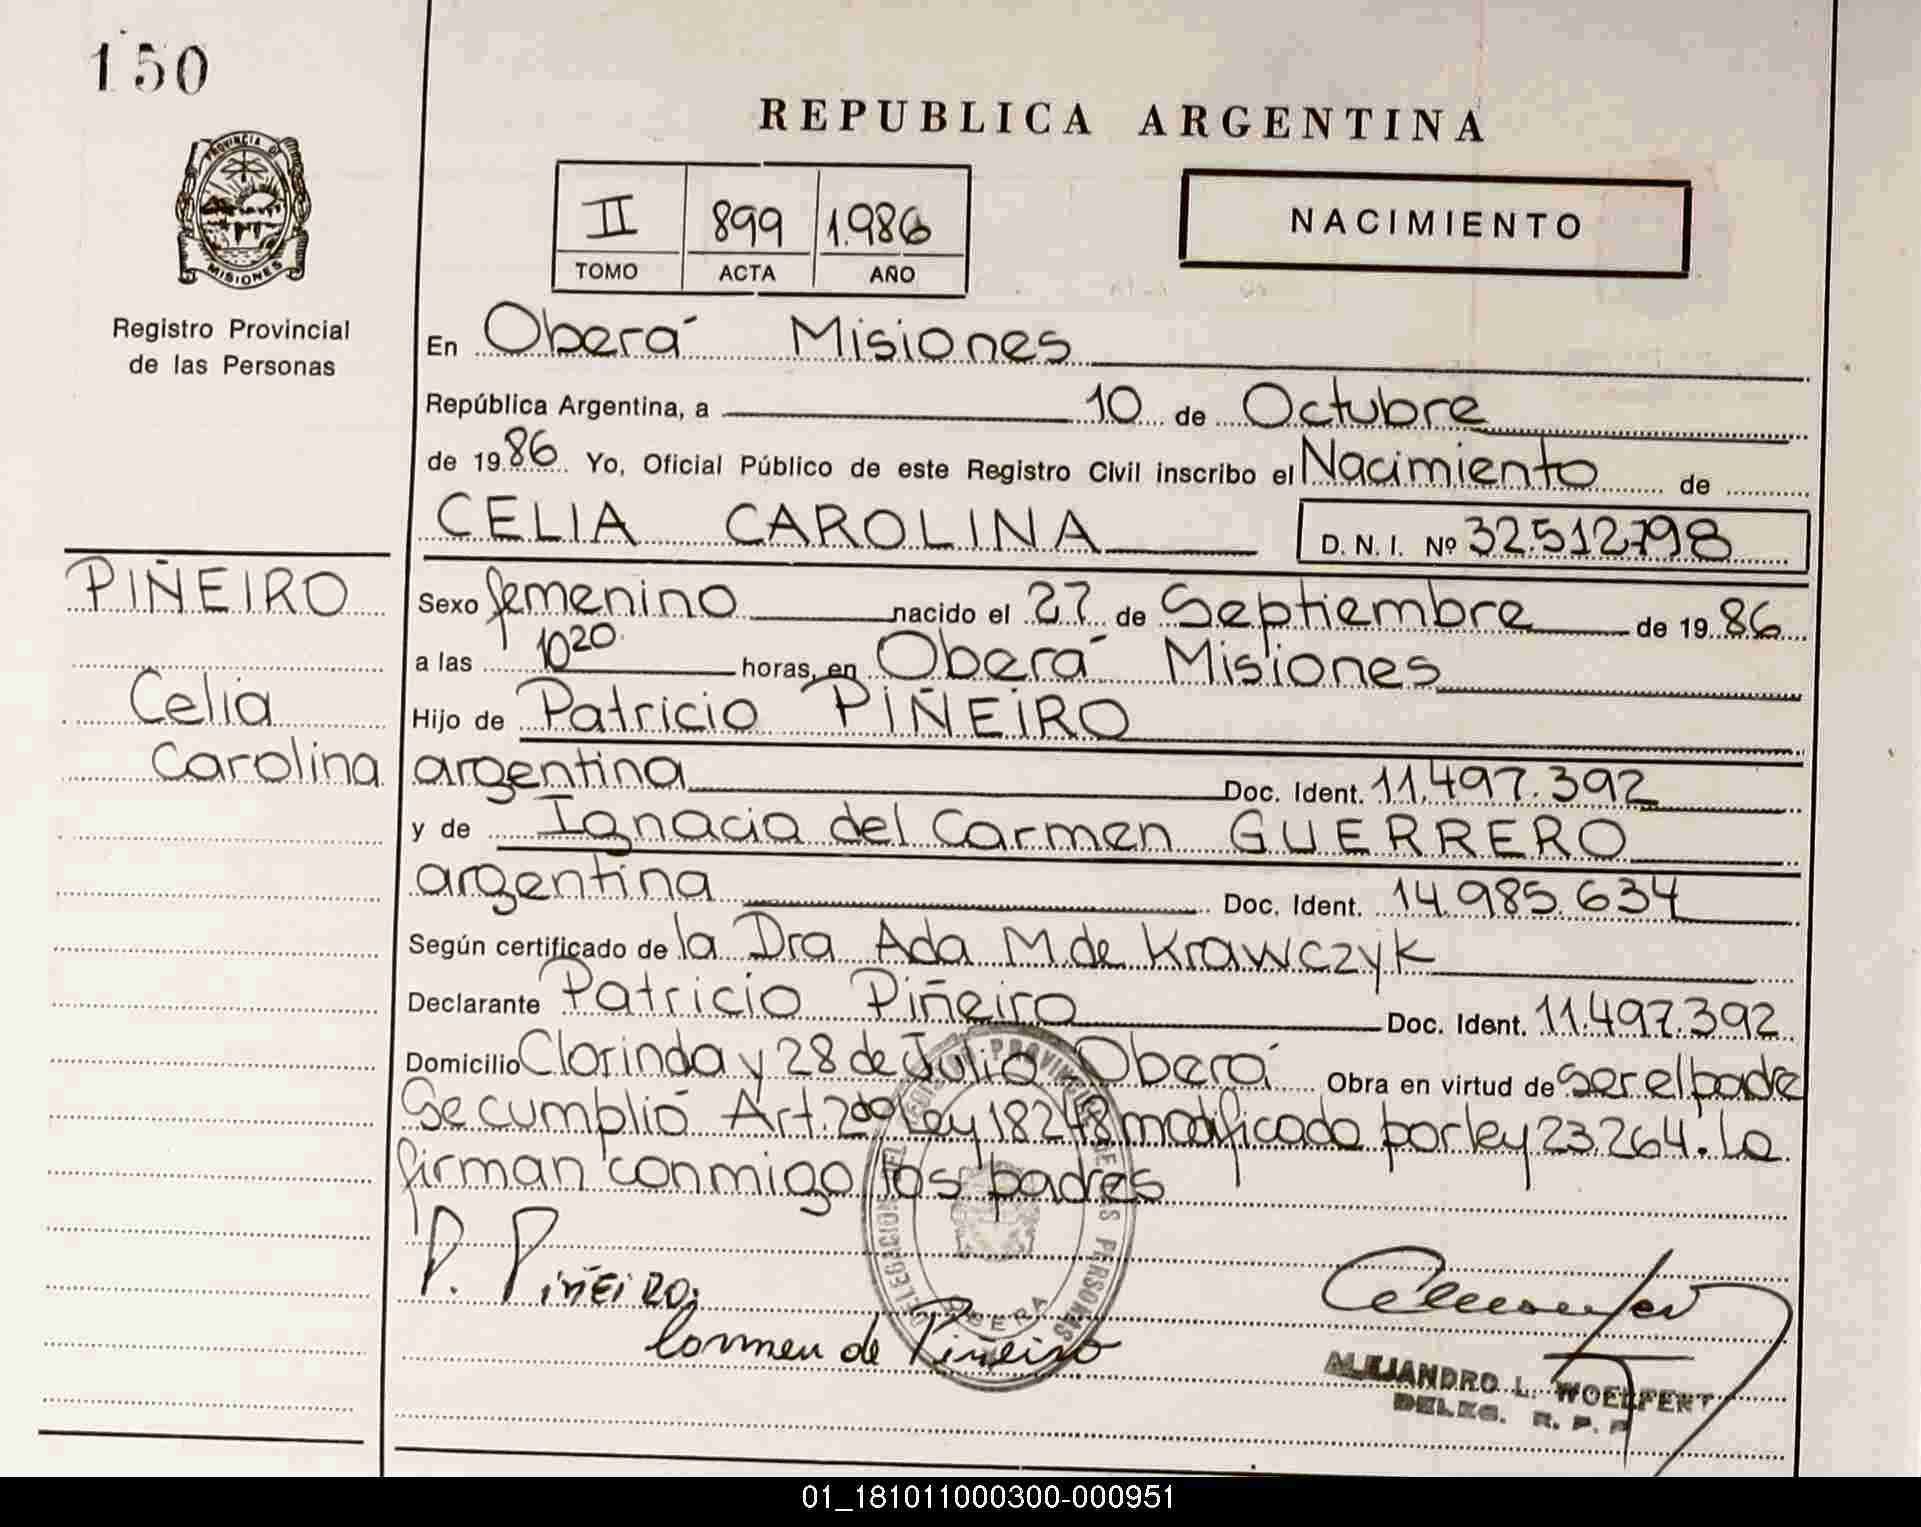 150
REPUBLICA ARGENTINA
PROVINCIA DE
MISIONES
Registro Provincial
de las Personas
II 899 1.986
TOMO ACTA AÑO
NACIMIENTO
En Oberá Misiones
República Argentina, a 10 de Octubre
de 1986 Yo, Oficial Público de este Registro Civil inscribo el Nacimiento de
CELIA CAROLINA D.N.I. Nº 32.512.798
PIÑEIRO
Celia
Carolina
Sexo femenino nacido el 27 de Septiembre de 1986
a las 10 20 horas, en Oberá Misiones
Hijo de Patricio PIÑEIRO
argentina Doc. Ident. 11.497.392
y de Ignacia del Carmen GUERRERO
argentina Doc. Ident. 14.985.634
Según certificado de la Dra Ada M. de Krawczyk
Declarante Patricio Piñeiro Doc. Ident. 11.497.392
Domicilio Clorinda y 28 de Julio Oberá Obra en virtud de ser el padre
Se cumplió Art. 2do Ley 18248 modificada por ley 23.264. La
firman conmigo los padres
P. PIÑEIRO.
Carmen de Piñeiro
DELEGACION DEL PROVINCIAL DE LAS PERSONAS
OBERA
ALEJANDRO L. WOELFERT
DELEG. R. P. P
01_181011000300-000951